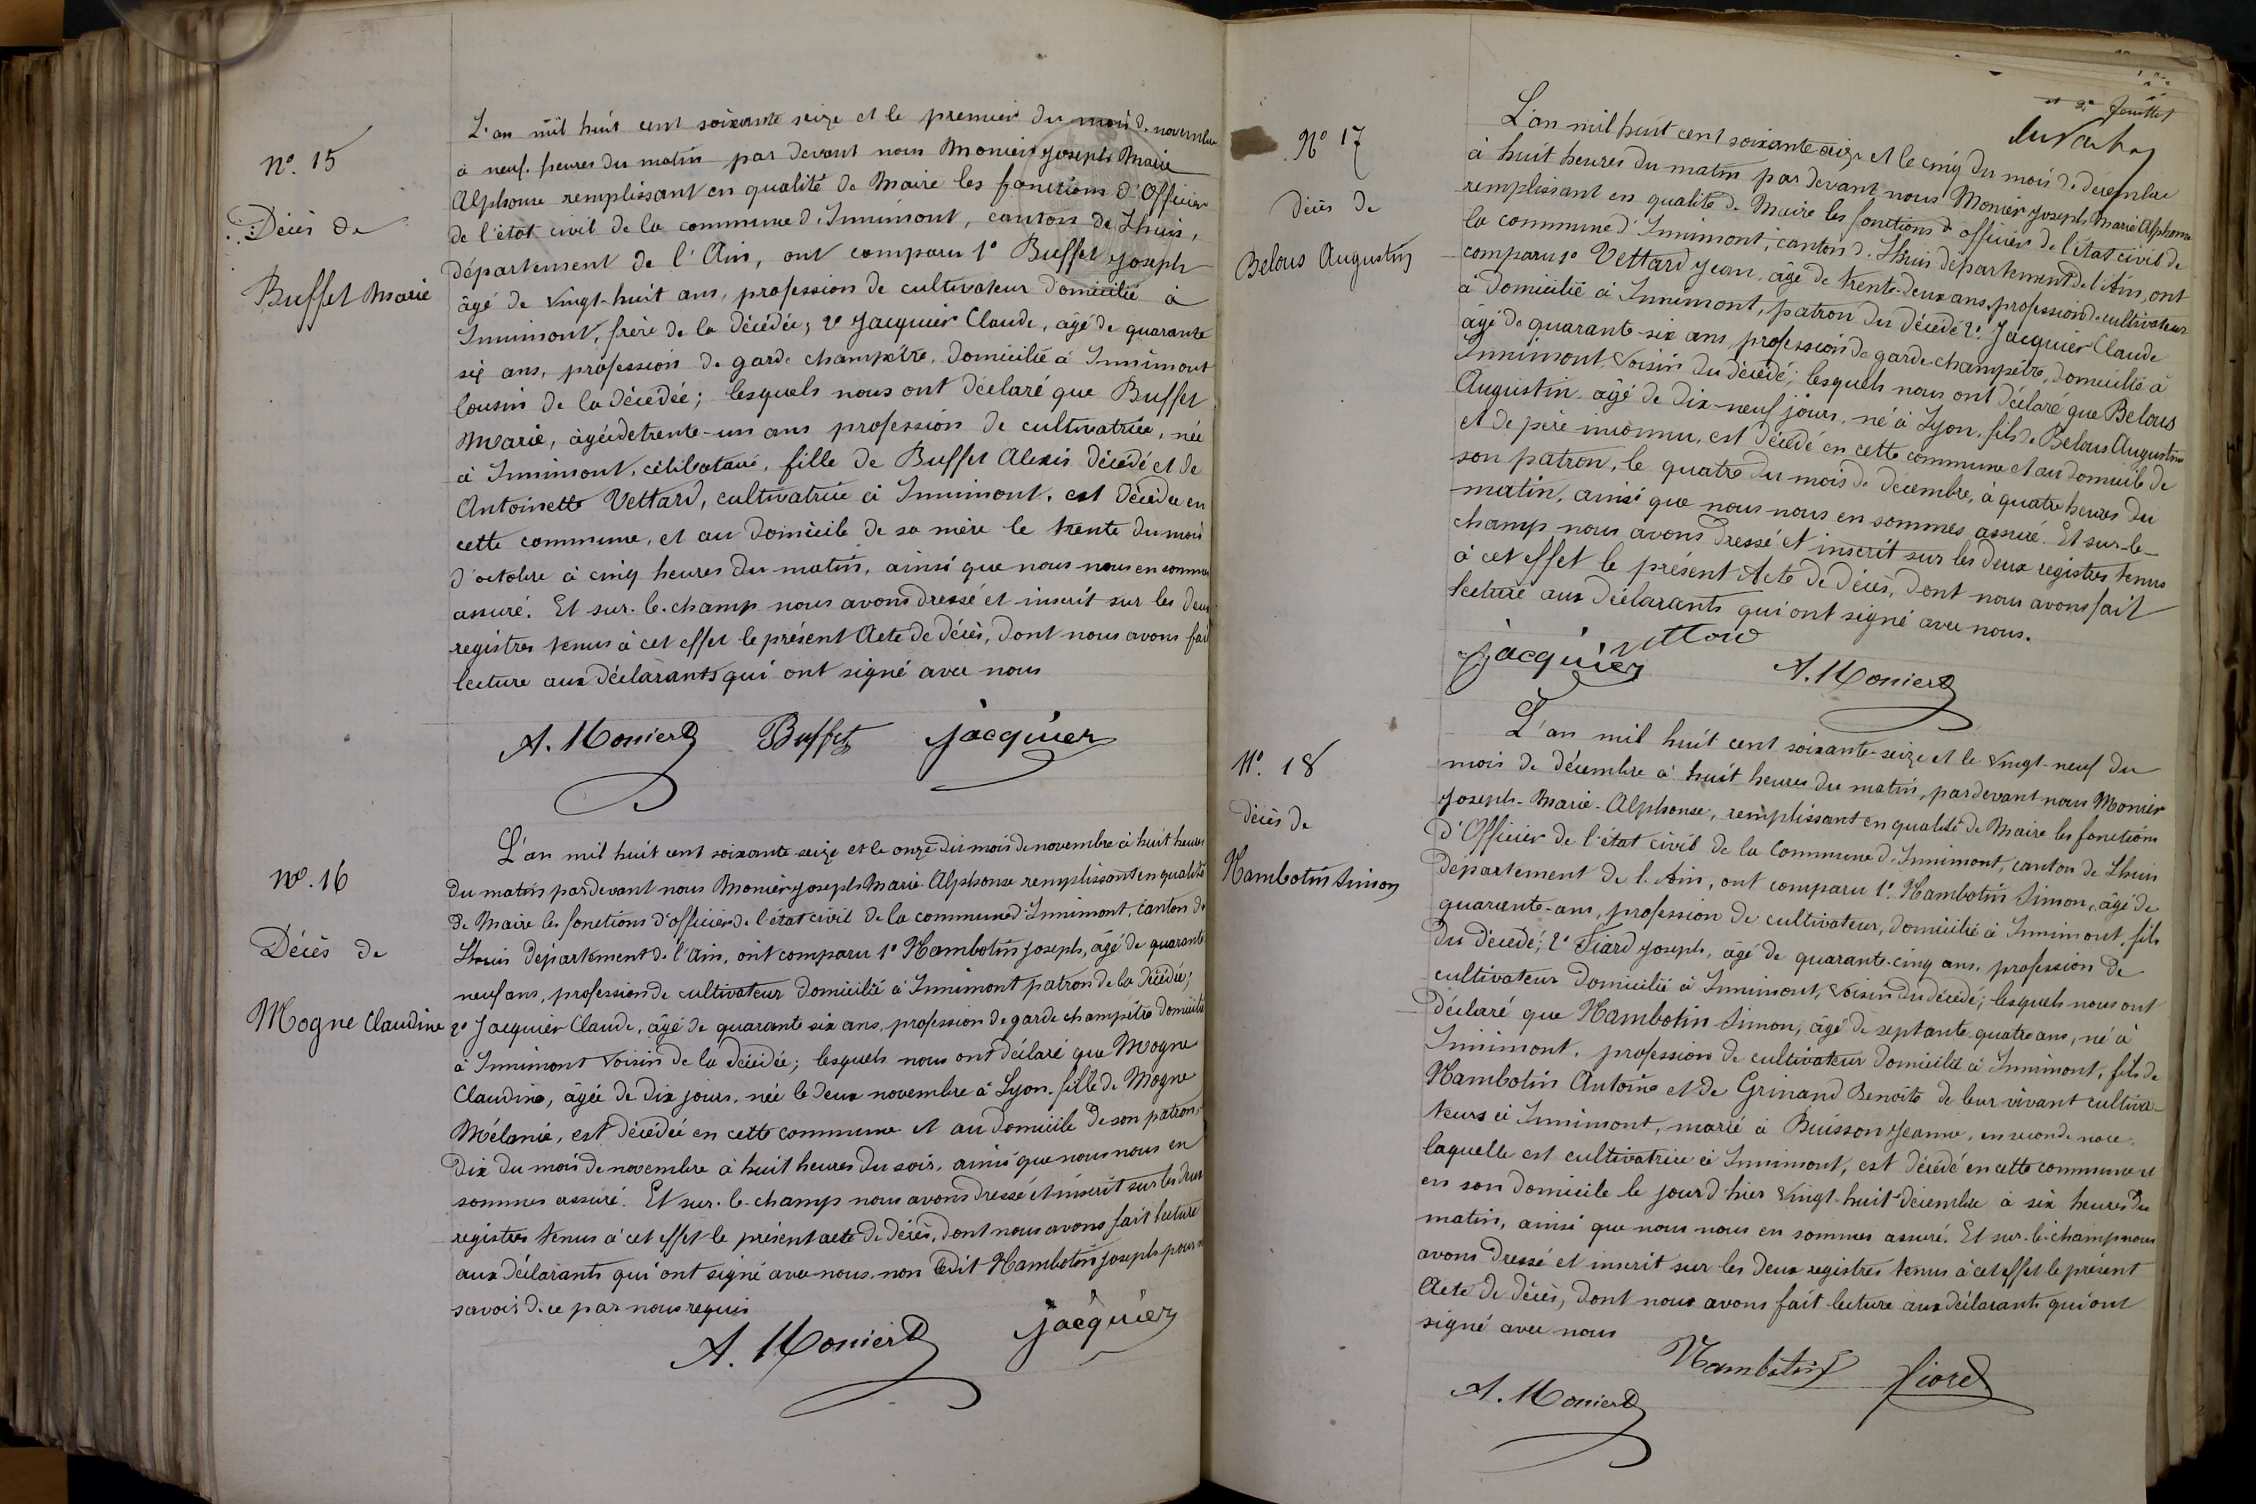 N° 15
Décès de
Buffet Marie
L'an mil huit cent soixante seize et le premier du mois de novembre
à neuf heures du matin par devant nous Monier Joseph Marie
Alphonse remplissant en qualité de Maire les fonctions d'Officier
de l'état civil de la commune d'Innimont, canton de Lhuis,
département de l'Ain, ont comparu 1° Buffet Joseph
âgé de vingt-huit ans, profession de cultivateur domicilié à
Innimont, frère de la décédée; 2° Jacquier Claude, âgé de quarante
six ans, profession de garde champêtre, domicilié à Innimont
cousin de la décédée; lesquels nous ont déclaré que Buffet
Marie, âgée de trente-un ans profession de cultivatrice, née
à Innimont, célibataire, fille de Buffet Alexis décédé et de
Antoinette Vettard, cultivatrice à Innimont, est décédée en
cette commune, et au domicile de sa mère le trente du mois
d'octobre à cinq heures du matin, ainsi que nous nous en sommes
assuré. Et sur-le-champ nous avons dressé et inscrit sur les deux
registres tenus à cet effet le présent Acte de décès, dont nous avons fait
lecture aux déclarants qui ont signé avec nous
A. Monier Buffet Jacquier
N°. 16
Décès de
Mogne Claudine
L'an mil huit cent soixante seize et le onze du mois de novembre à huit heures
du matin pardevant nous Monier Joseph Marie Alphonse remplissant en qualité
de Maire les fonctions d'officier de l'état civil de la commune d'Innimont, canton de
Lhuis département de l'Ain, ont comparu 1° Hambotin Joseph, âgé de quarante
neuf ans, profession de cultivateur domicilié à Innimont patron de la décédée;
2° Jacquier Claude, âgé de quarante six ans, profession de garde champêtre domicilié
à Innimont voisin de la décédée; lesquels nous ont déclaré que Mogne
Claudine, âgée de dix jours, née le deux novembre à Lyon, fille de Mogne
Mélanie, est décédée en cette commune et au domicile de son patron,
dix du mois de novembre à huit heures du soir, ainsi que nous nous en
sommes assuré. Et sur-le-champ nous avons dressé et inscrit sur les deux
registres tenus à cet effet le présent acte de décès, dont nous avons fait lecture
aux déclarants qui ont signé avec nous, non ledit Hambotin Joseph pour ne
savoir de ce par nous requis
A. Monier Jacquier
Feuillet
N° 17
Décès de
Belous Augustin
L'an mil huit cent soixante seize et le cinq du mois de décembre
à huit heures du matin par devant nous Monier Joseph Marie Alphonse
remplissant en qualité de Maire les fonctions d'officier de l'état civil de
la commune d'Innimont, canton de Lhuis département de l'Ain, ont
comparu 1° Vettard Jean, âgé de trente-deux ans, profession de cultivateur
à domicilié à Innimont, patron du décédé 2° Jacquier Claude
âgé de quarante-six ans, profession de garde-champêtre, domicilié à
Innimont, voisin du décédé; lesquels nous ont déclaré que Belous
Augustin âgé de dix-neuf jours, né à Lyon, fils de Belous Augustine
et de père inconnu, est décédé en cette commune et au domicile de
son patron, le quatre du mois de décembre, à quatre heures du
matin, ainsi que nous nous en sommes assuré. Et sur-le-
champ nous avons dressé et inscrit sur les deux registres tenus
à cet effet le présent Acte de décès, dont nous avons fait
lecture aux déclarants qui ont signé avec nous.
Jacquier Vettard A. Monier
N°. 18
Décès de
Hambotin Simon
L'an mil huit cent soixante-seize et le vingt-neuf du
mois de décembre à huit heures du matin, pardevant nous Monier
Joseph-Marie-Alphonse, remplissant en qualité de Maire les fonctions
d'Officier de l'état civil de la Commune d'Innimont, canton de Lhuis
département de l'Ain, ont comparu 1° Hambotin Simon, âgé de
quarante-ans, profession de cultivateur, domicilié à Innimont, fils
du décédé; 2° Fiard Joseph, âgé de quarante-cinq ans, profession de
cultivateur domicilié à Innimont, voisin du décédé; lesquels nous ont
déclaré que Hambotin Simon, âgé de septante-quatre ans, né à
Innimont, profession de cultivateur domicilié à Innimont, fils de
Hambotin Antoine et de Grinand Benoîte de leur vivant cultiva-
teurs à Innimont, marié à Buisson Jeanne, en seconde noce,
laquelle est cultivatrice à Innimont, est décédé en cette commune et
en son domicile le jour d'hier vingt-huit décembre à six heures du
matin, ainsi que nous nous en sommes assuré. Et sur-le-champ nous
avons dressé et inscrit sur les deux registres tenus à cet effet le présent
Acte de décès, dont nous avons fait lecture aux déclarants qui ont
signé avec nous
Hambotin Fiard
A. Monier